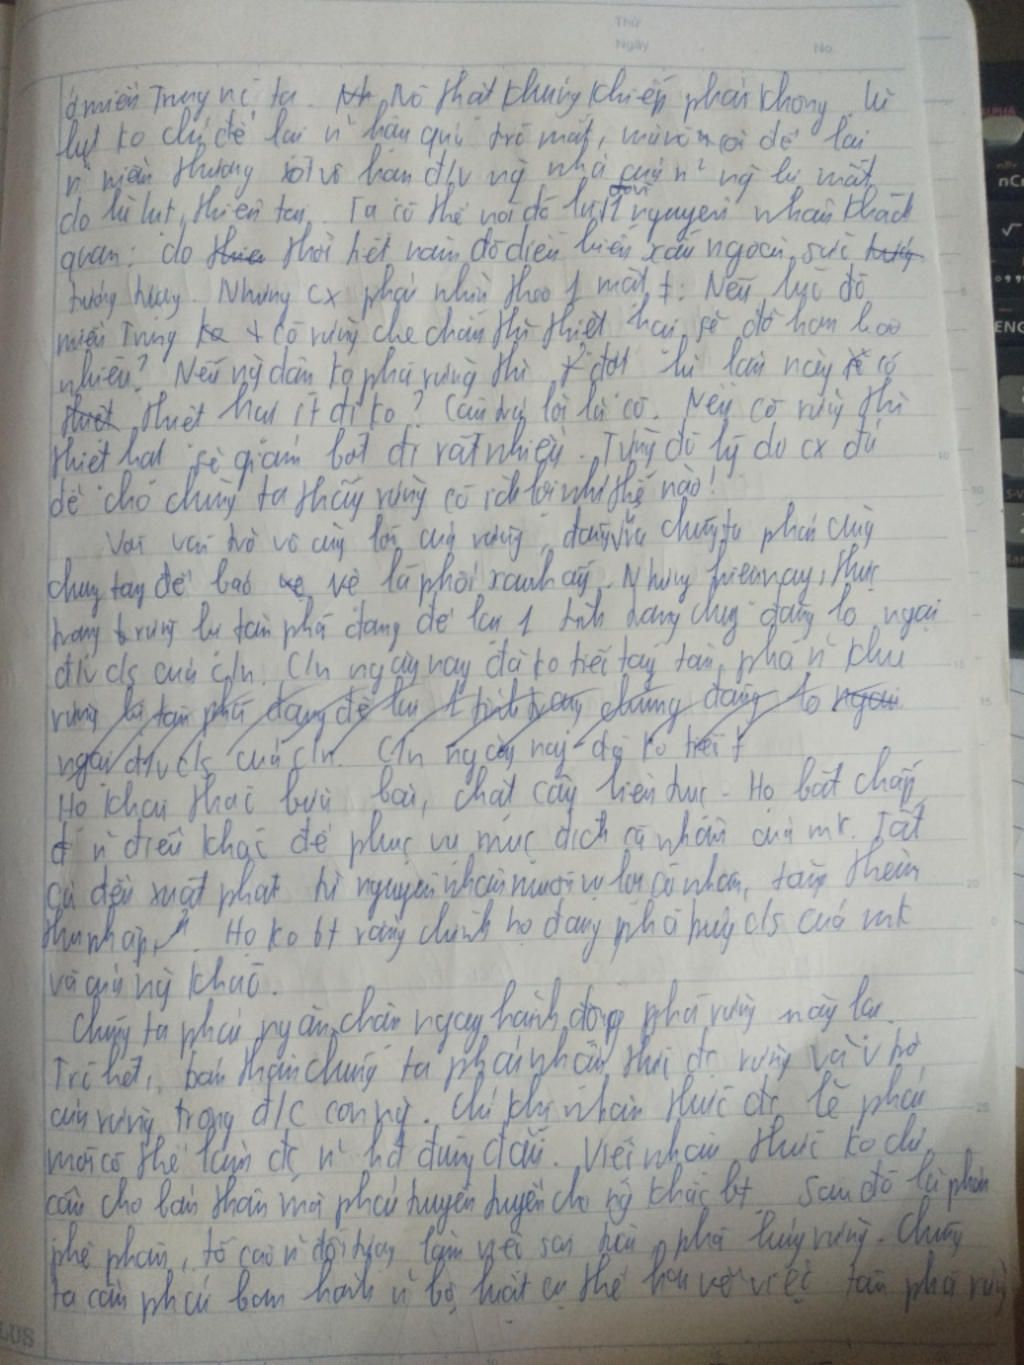 Thứ
Ngày No.
ở miền Trung nc ta. Nó thật khủng khiếp phải không. Lũ
lụt ko chỉ để lại n hậu quả trc mắt, mà còn để lại
n niềm thương xót vô hạn đ/v ng nhà của n ng bị mất
do lũ lụt, thiên tai. Ta có thể nói đó là 1 nguyên nhân khách
quan: do thời tiết năm đó diễn biến xấu ngoài sức
tưởng tượng. Nhưng cx phải nhìn theo 1 mặt t: Nếu lúc đó
miền Trung có rừng che chắn thì thiệt hại sẽ đỡ hơn bao
nhiêu? Nếu ng dân ko phá rừng thì đợt lũ lần này có
thiệt hại ít đi ko? Câu trả lời là có. Nếu có rừng thì
thiệt hại sẽ giảm bớt đi rất nhiều. Từng đó lý do cx đủ
để cho chúng ta thấy rừng có ích lợi như thế nào!
Với vai trò vô cùng lớn của rừng, chúng ta phải cùng
chung tay để bảo vệ lá phổi xanh ấy. Nhưng hiện nay, thực
trạng rừng bị tàn phá đang để lại 1 tình trạng chung đáng lo ngại
đ/v c/s của c/n. C/n ngày nay đã ko tiếc tay tàn phá n khu
rừng bị tàn phá đang để lại 1 tình trạng chung đáng lo ngại
ngại đ/v c/s của c/n. C/n ngày nay đã ko tiếc t
Họ khai thác bừa bãi, chặt cây liên tục. Họ bất chấp
n điều khác để phục vụ mục đích cá nhân của mk. Tất
cả đều xuất phát từ nguyên nhân muốn vụ lợi cá nhân, tăng thêm
thu nhập. Họ ko bt rằng chính họ đang phá hủy c/s của mk
và của ng khác.
Chúng ta phải ngăn chặn ngay hành động phá rừng này lại.
Trc hết, bản thân chúng ta phải nhận thức đc rừng và v trò
của rừng trong đ/c con ng. Chỉ khi nhận thức đc lẽ phải
mới có thể làm đc n hđ đúng đắn. Việc nhận thức ko chỉ
cần cho bản thân mà phải tuyên truyền cho ng khác bt. Sau đó là phải
phê phán, tố cáo n đối tượng làm việc sai trái, phá hủy rừng. Chúng
ta cần phải ban hành n bộ luật cụ thể hơn về việc tàn phá rừng